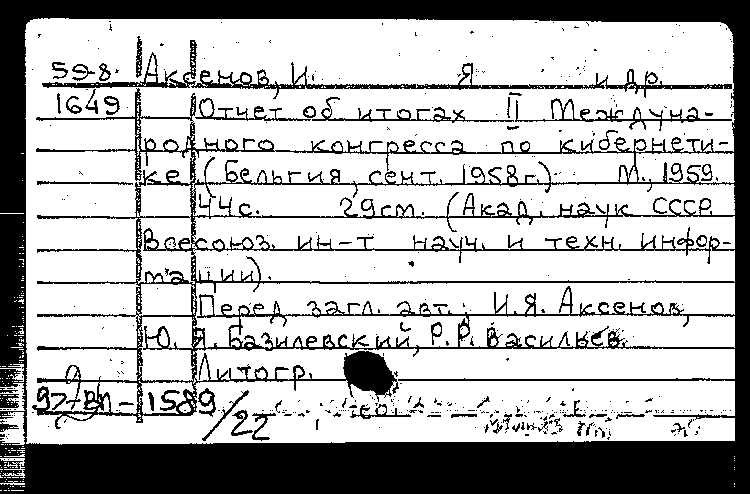 59-8. Аксенов, И. Я и др.
1649 Отчет об итогах II Междуна-
родного конгресса по кибернети-
ке (Бельгия, сент. 1958г.) М., 1959.
44с. 29см. (Акад. наук СССР.
Всесоюз. ин-т науч. и техн. инфор-
мации).
Перед загл. авт.: И.Я. Аксенов,
Ю. Я. Базилевский, Р.Р. Васильев.
Литогр.
1589/22